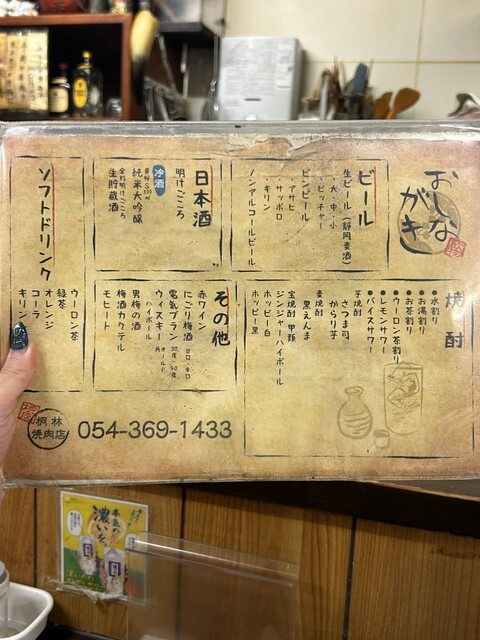 おしながき
ビール
生ビール（静岡麦酒）
・大・中・小
・ピッチャー
ビンビール
・アサヒ
・サッポロ
・キリン
ノンアルコールビール
日本酒
明けごころ
冷酒
純米大吟醸
生貯蔵酒
ソフトドリンク
ウーロン茶
緑茶
オレンジ
コーラ
キリン
焼酎
●水割り
●お湯割り
●お茶割り
●ウーロン茶割り
●レモンサワー
●バイスサワー
芋焼酎
さつま司
からり芋
麦焼酎
黒えんま
宝焼酎 甲類
ジンジャーハイボール
ホッピー白
ホッピー黒
その他
赤ワイン 甘口・辛口
にごり梅酒
電気ブラン 30度・40度
ウィスキー オールド 角
ハイボール
男梅の酒
梅酒カクテル
モヒート
桐林
焼肉店
054-369-1433
本気の
濃いを。